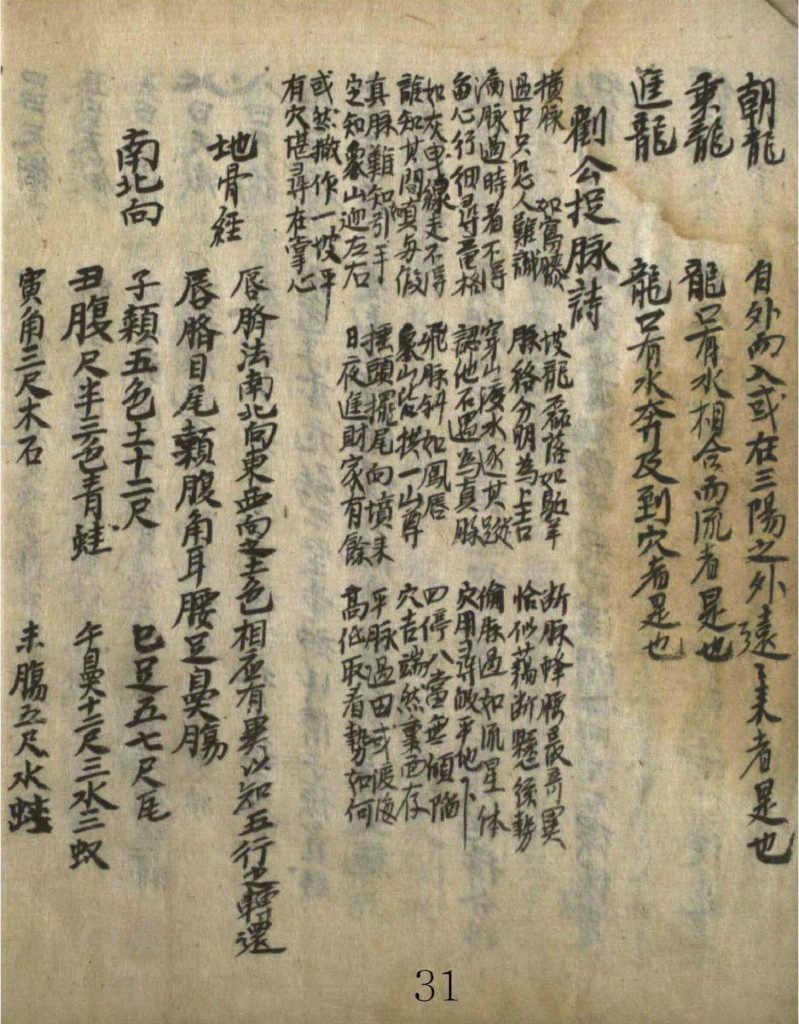 朝龍 自外而入或在三陽之外遠々来者是也
乗龍 龍口有水相合而流者是也
進龍 龍口有水奔及到穴者是也
劉公捉脉詩
橫脉 如寫 坡龍 落如 羊 断脉蜂腰最奇異
過中只恐人難識 脉絡分明為上吉 恰似藕断懸後勢
脉過時看不得 穿山渡水逐其蹤 偷脉過如流星体
留心行細尋 認他石過為真脉 穴用尋 平地下
如灰中線走不得 飛脉斜如鳳唇 四停八當無傾陷
誰知其間 与假 衆山皆拱一山尊 穴吉端然裏面存
真脉難知引手 揺頭擺尾向墳来 平脉過田或渡海
定知衆山迎左右 日夜進財家有餘 高低取看勢如何
或然撒作一坡平
有穴堪尋在掌心
地骨経 唇臍法南北向東西向之土色相応有異以知五行之轉還
唇臍目尾顙腹角耳腰足鼻腸
南北向 子顙五色土十二尺 巳足五七尺尾
丑腹尺半三色青蛙 午鼻十二尺三水三蚁
寅角三尺木石 未腸五尺水蛙
31